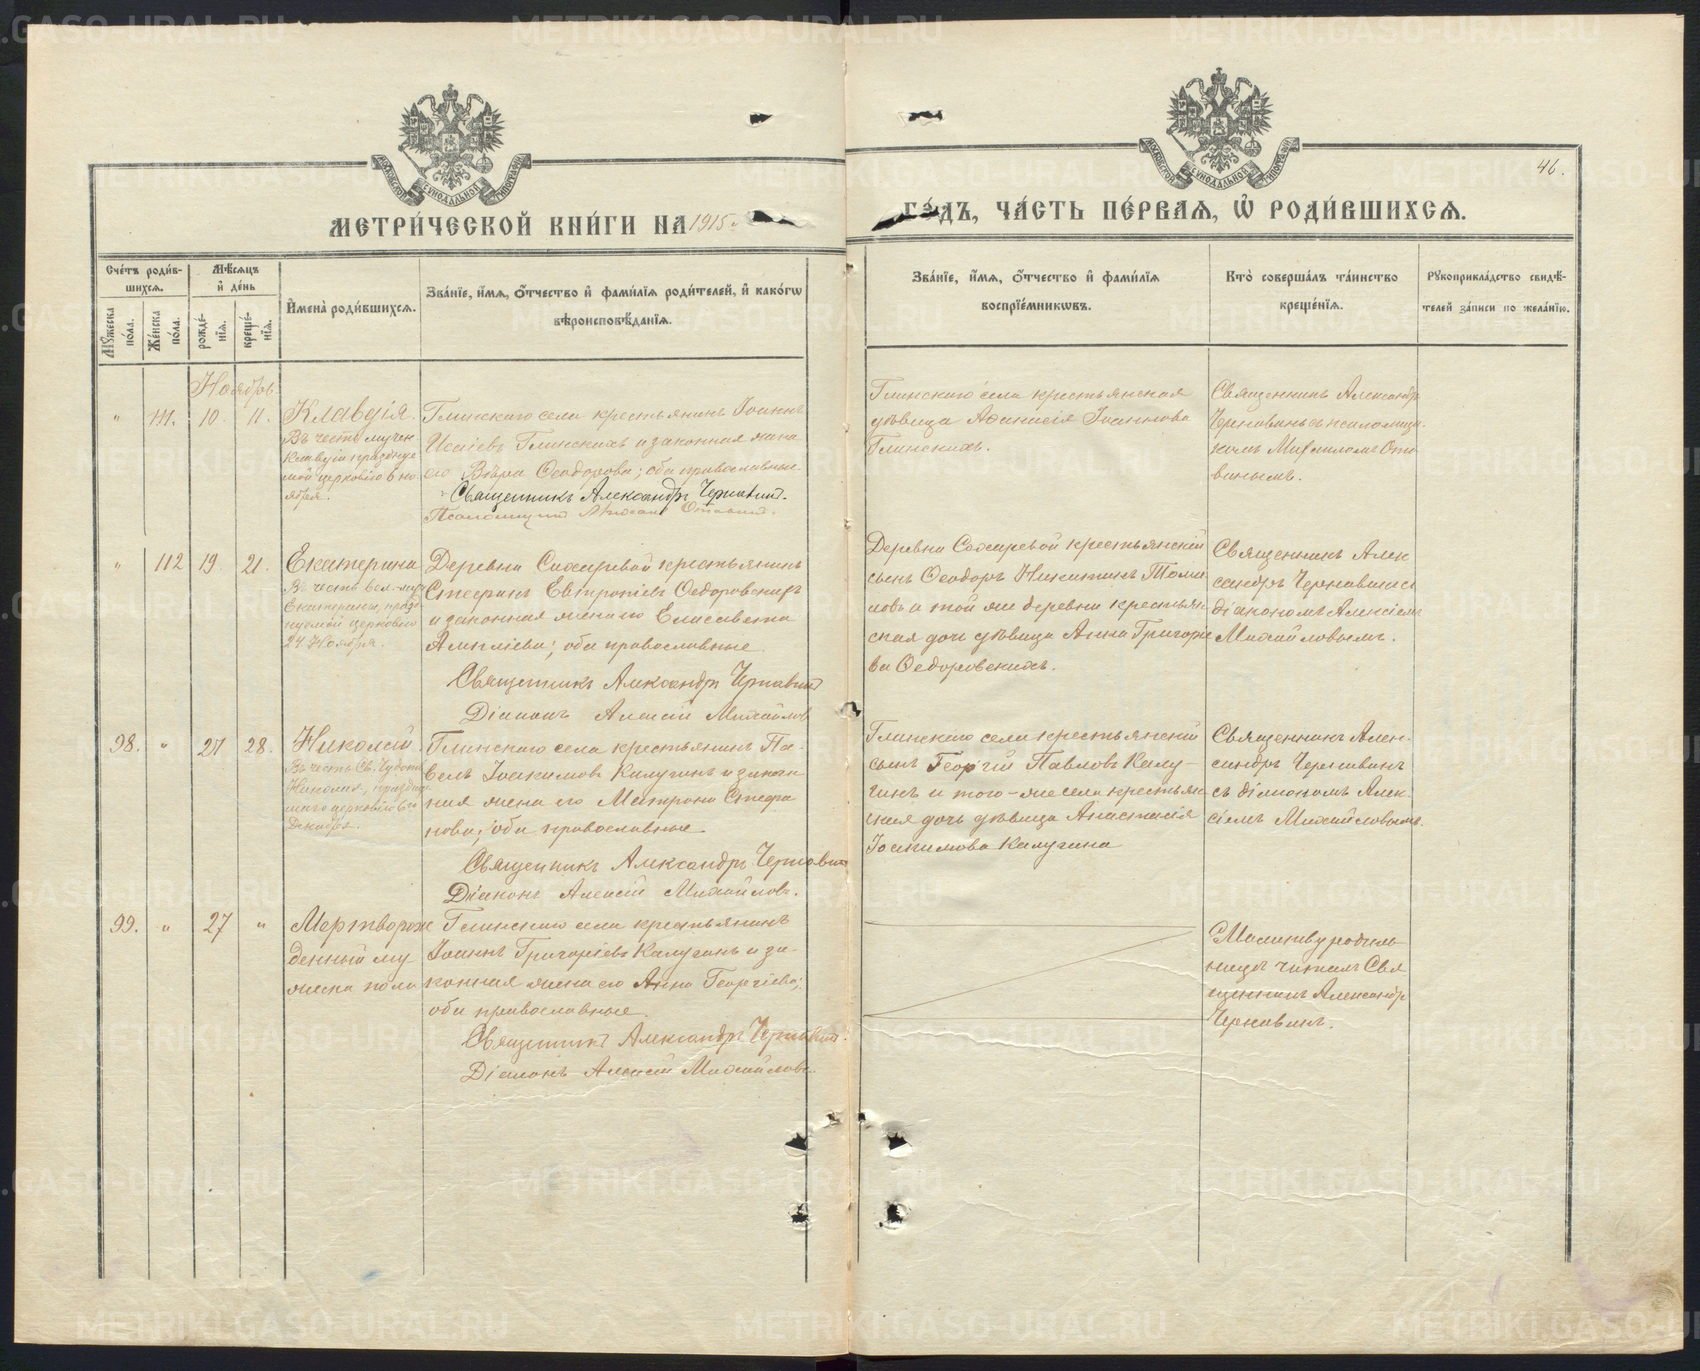 46.
МЕТРИ́ЧЕСКОЙ КНИ́ГИ НА 1915 г. ГО́ДЪ, ЧА́СТЬ ПЕ́РВАЯ, Ѡ҆ РОДИ́ВШИХСЯ.
МОСКОВСКОЙ СѴНОДАЛЬНОЙ ТИПОГРАФІИ
МОСКОВСКОЙ СѴНОДАЛЬНОЙ ТИПОГРАФІИ
Сче́тъ роди́в-
шихся.
Мѣ́сяцъ
и҆ де́нь
Мꙋ́жеска
по́ла.
Же́нска
по́ла.
рожде́-
нїя.
креще́-
нїя.
И҆мена̀ роди́вшихся.
Зва́нїе, и҆́мя, ѻ҆́тчество и҆ фами́лїя роди́телей, и҆ како́гѡ
вѣроисповѣ́данїя.
Зва́нїе, и҆́мя, ѻ҆́тчество и҆ фами́лїя
воспрїе́мникѡвъ.
Кто̀ соверша́лъ та́инство
креще́нїя.
Рꙋкоприкла́дство свидѣ́-
телей за́писи по жела́нїю.
Ноябрь
" 111. 10. 11.
Клавдія.
Въ честь мучен.
Клавдіи празднуе
мой церковію 6 но
ября.
Глинскаго села крестьянинъ Іоаннъ
Исаіевъ Глинскихъ и законная жена
его Вѣра Ѳеодорова; оба православные
Священникъ Александръ Чернавинъ.
Псаломщикъ
Глинскаго села крестьянская
дѣвица Аѳанасія Іоаннова
Глинскихъ.
Священникъ Александръ
Чернавинъ съ псаломщи-
комъ
" 112 19. 21.
Екатерина
Въ честь вел. муч.
Екатерины, празд
нуемой церковію
24 Ноября.
Деревни Сохаревой крестьянинъ
Стефанъ Евтропіевъ Ѳедоровскихъ
и законная жена его Елисавета
оба православные
Священникъ Александръ Чернавинъ
Діаконъ Алексій Михайловъ
Деревни Сохаревой крестьянскій
сынъ Ѳеодоръ Никитинъ Томи
ловъ и той же деревни крестьян
ская дочь дѣвица Анна Григоріе
ва Ѳедоровскихъ.
Священникъ Алек
сандръ Чернавинъ съ
діакономъ Алексіемъ
Михайловымъ.
98. " 27 28.
Николай
Въ честь Св. Чудотв.
Николая, праздну
маго церковію 6го
Декабря.
Глинскаго села крестьянинъ Па-
велъ Іоакимовъ Калугинъ и закон
ная жена его Матрона Стефа
нова; оба православные
Священникъ Александръ Чернавинъ
Діаконъ Алексій Михайловъ.
Глинскаго села крестьянскій
сынъ Георгій Павловъ Калу-
гинъ и того-же села крестьян
ская дочь дѣвица Анастасія
Іоакимова Калугина
Священникъ Алек-
сандръ Чернавинъ
съ діакономъ Алек-
сіемъ Михайловымъ.
99. " 27 "
Мертворож
денный му
жеска пола
Глинскаго села крестьянинъ
Іоаннъ Григоріевъ Калугинъ и за-
конная жена его Анна Георгіева;
оба православные.
Священникъ Александръ Чернавинъ.
Діаконъ Алексій Михайловъ.
Молитву родиль
ницѣ читалъ Свя
щенникъ Александръ
Чернавинъ.
METRIKI.GASO-URAL.RU